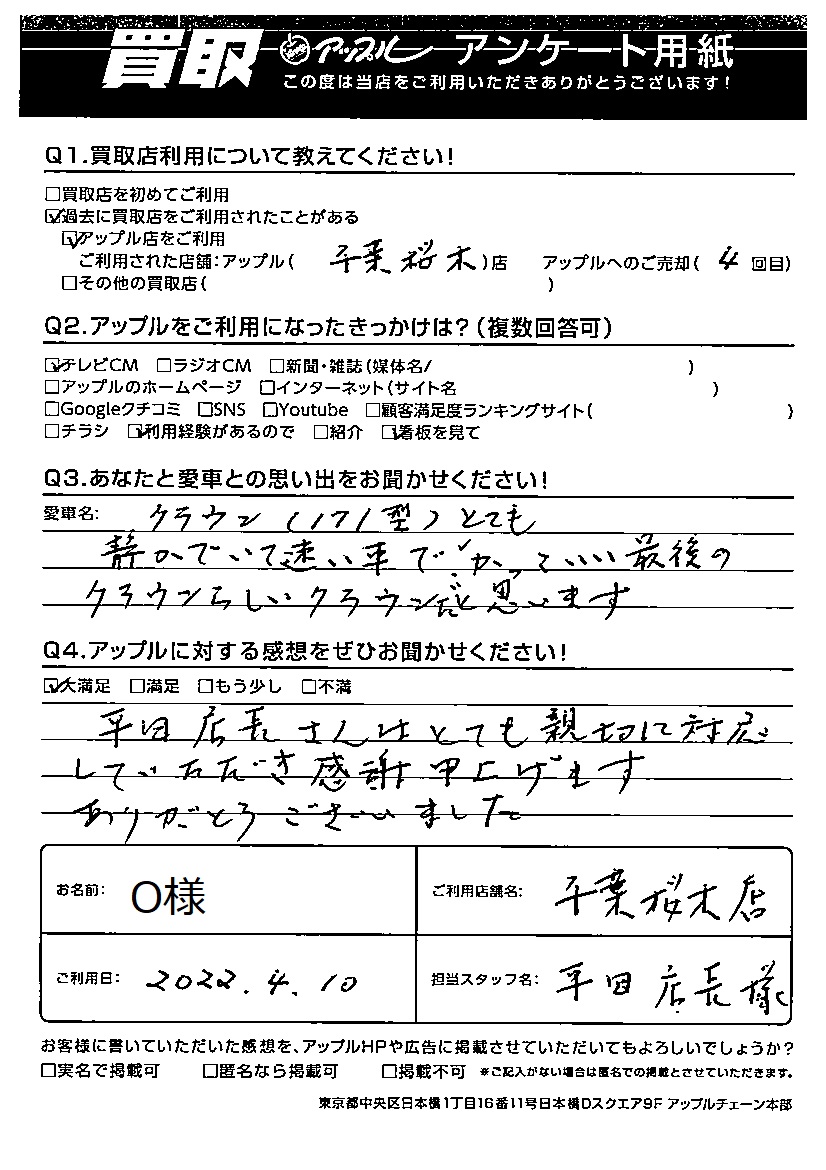 買取 アップル アンケート用紙
この度は当店をご利用いただきありがとうございます!
Q1.買取店利用について教えてください!
□買取店を初めてご利用
☑過去に買取店をご利用されたことがある
☑アップル店をご利用
ご利用された店舗:アップル( 千葉桜木 )店 アップルへのご売却( 4 回目)
□その他の買取店( )
Q2.アップルをご利用になったきっかけは?(複数回答可)
☑テレビCM □ラジオCM □新聞・雑誌(媒体名/ )
□アップルのホームページ □インターネット(サイト名 )
□Googleクチコミ □SNS □Youtube □顧客満足度ランキングサイト( )
□チラシ ☑利用経験があるので □紹介 ☑看板を見て
Q3.あなたと愛車との思い出をお聞かせください!
愛車名: クラウン(171型)とても
静かでいて速い車で かっこいい最後の
クラウンらしいクラウンだと思います
Q4.アップルに対する感想をぜひお聞かせください!
☑大満足 □満足 □もう少し □不満
平田店長さんはとても親切に対応
していただき感謝申上げます
ありがとうございました
お名前: O様 ご利用店舗名: 千葉桜木店
ご利用日: 2022.4.10 担当スタッフ名: 平田店長様
お客様に書いていただいた感想を、アップルHPや広告に掲載させていただいてもよろしいでしょうか?
□実名で掲載可 □匿名なら掲載可 □掲載不可 ※ご記入がない場合は匿名での掲載とさせていただきます。
東京都中央区日本橋1丁目16番11号日本橋Dスクエア9F アップルチェーン本部